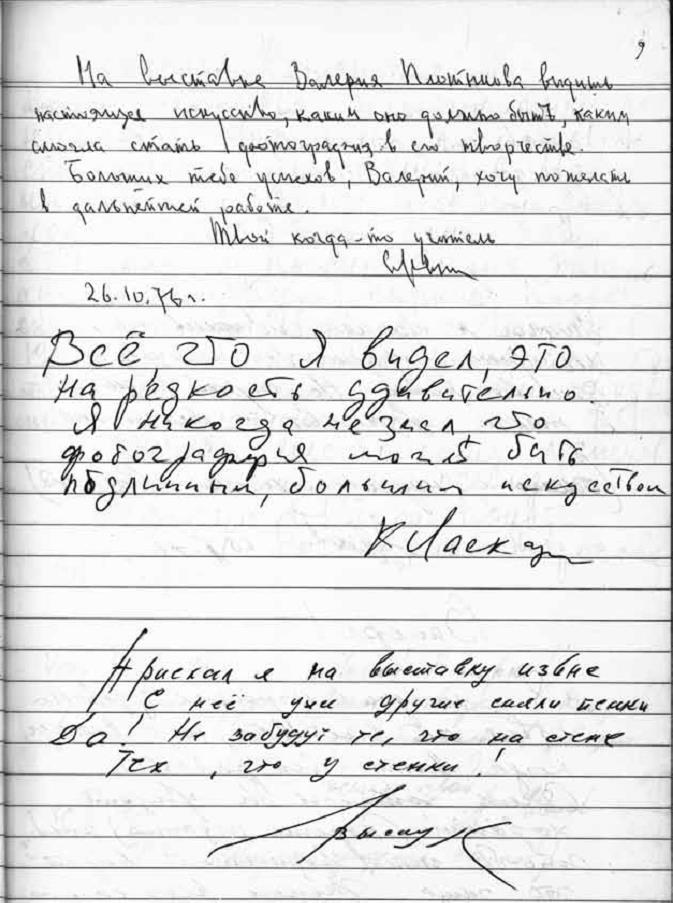 9
На выставке Валерия Плотникова видишь
настоящее искусство, каким оно должно быть, каким
смогла стать фотография в его творчестве.
Больших тебе успехов, Валерий, хочу пожелать
в дальнейшей работе.
Твой когда-то учитель
26.10.76 г.
Всё, что я видел, это
на редкость удивительно.
Я никогда не знал что
фотография может быть
подлинным, большим искусством
К Ласкари
Прискакал я на выставку извне
С неё уже другие сняли пенки
Да! Не забудут те, что на стене
Тех, что у стенки!
Высоцк